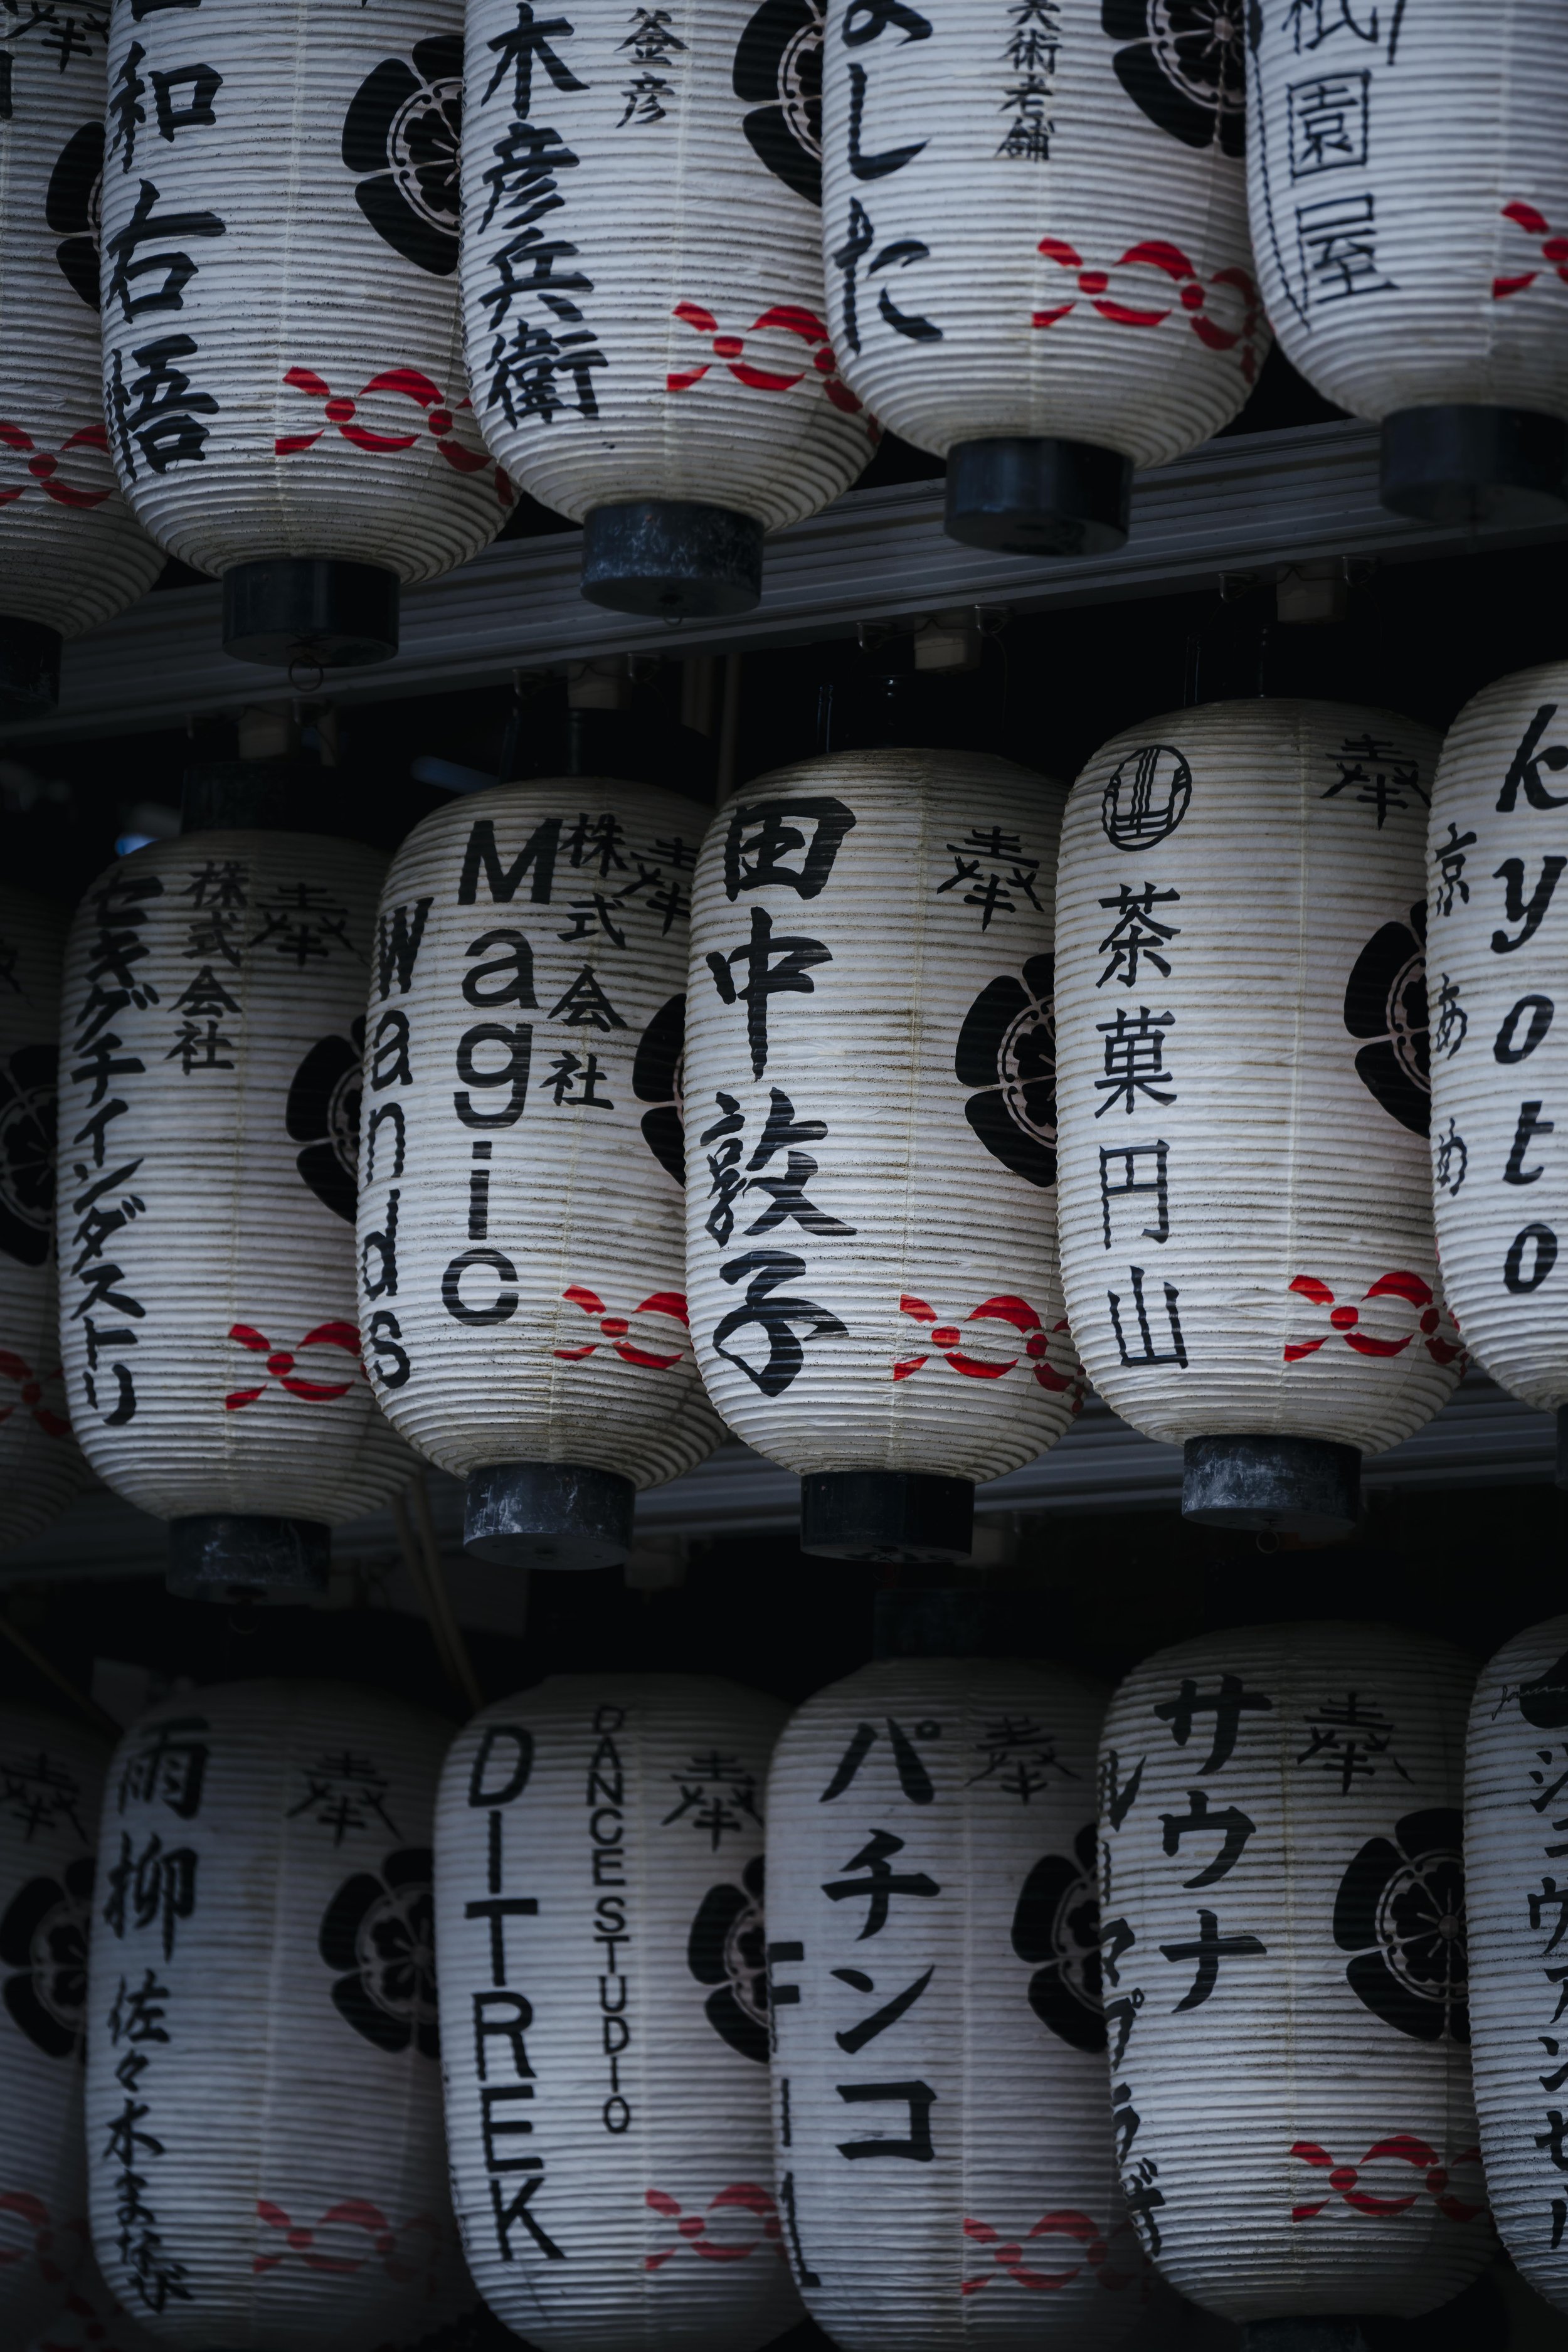 和右悟
釜彦
木彦兵衛
美術老舗
よした
祇園屋
奉
株式会社
セキグチインダストリー
奉
株式会社
Magic
Wands
奉
田中敦子
奉
茶菓円山
kyoto
京あめ
奉
奉
雨柳
佐々木まなび
奉
DANCE STUDIO
DITREK
奉
パチンコ
奉
サウナ